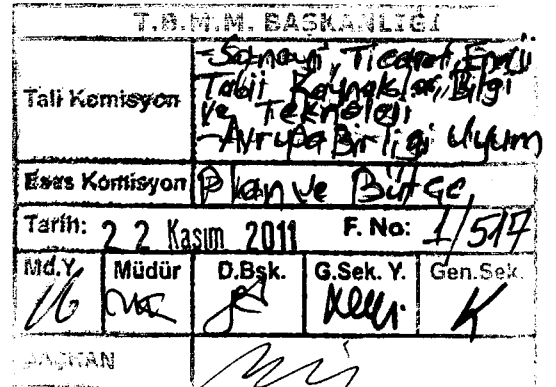 T.B.M.M. BAŞKANLIĞI
Tali Komisyon
-Sanayi, Ticaret, Enerji
Tabii Kaynaklar, Bilgi
ve Teknoloji
-Avrupa Birliği Uyum
Esas Komisyon Plan ve Bütçe
Tarih: 22 Kasım 2011 F. No: 1/517
Md.Y. Müdür D.Bşk. G.Sek. Y. Gen.Sek.
BAŞKAN